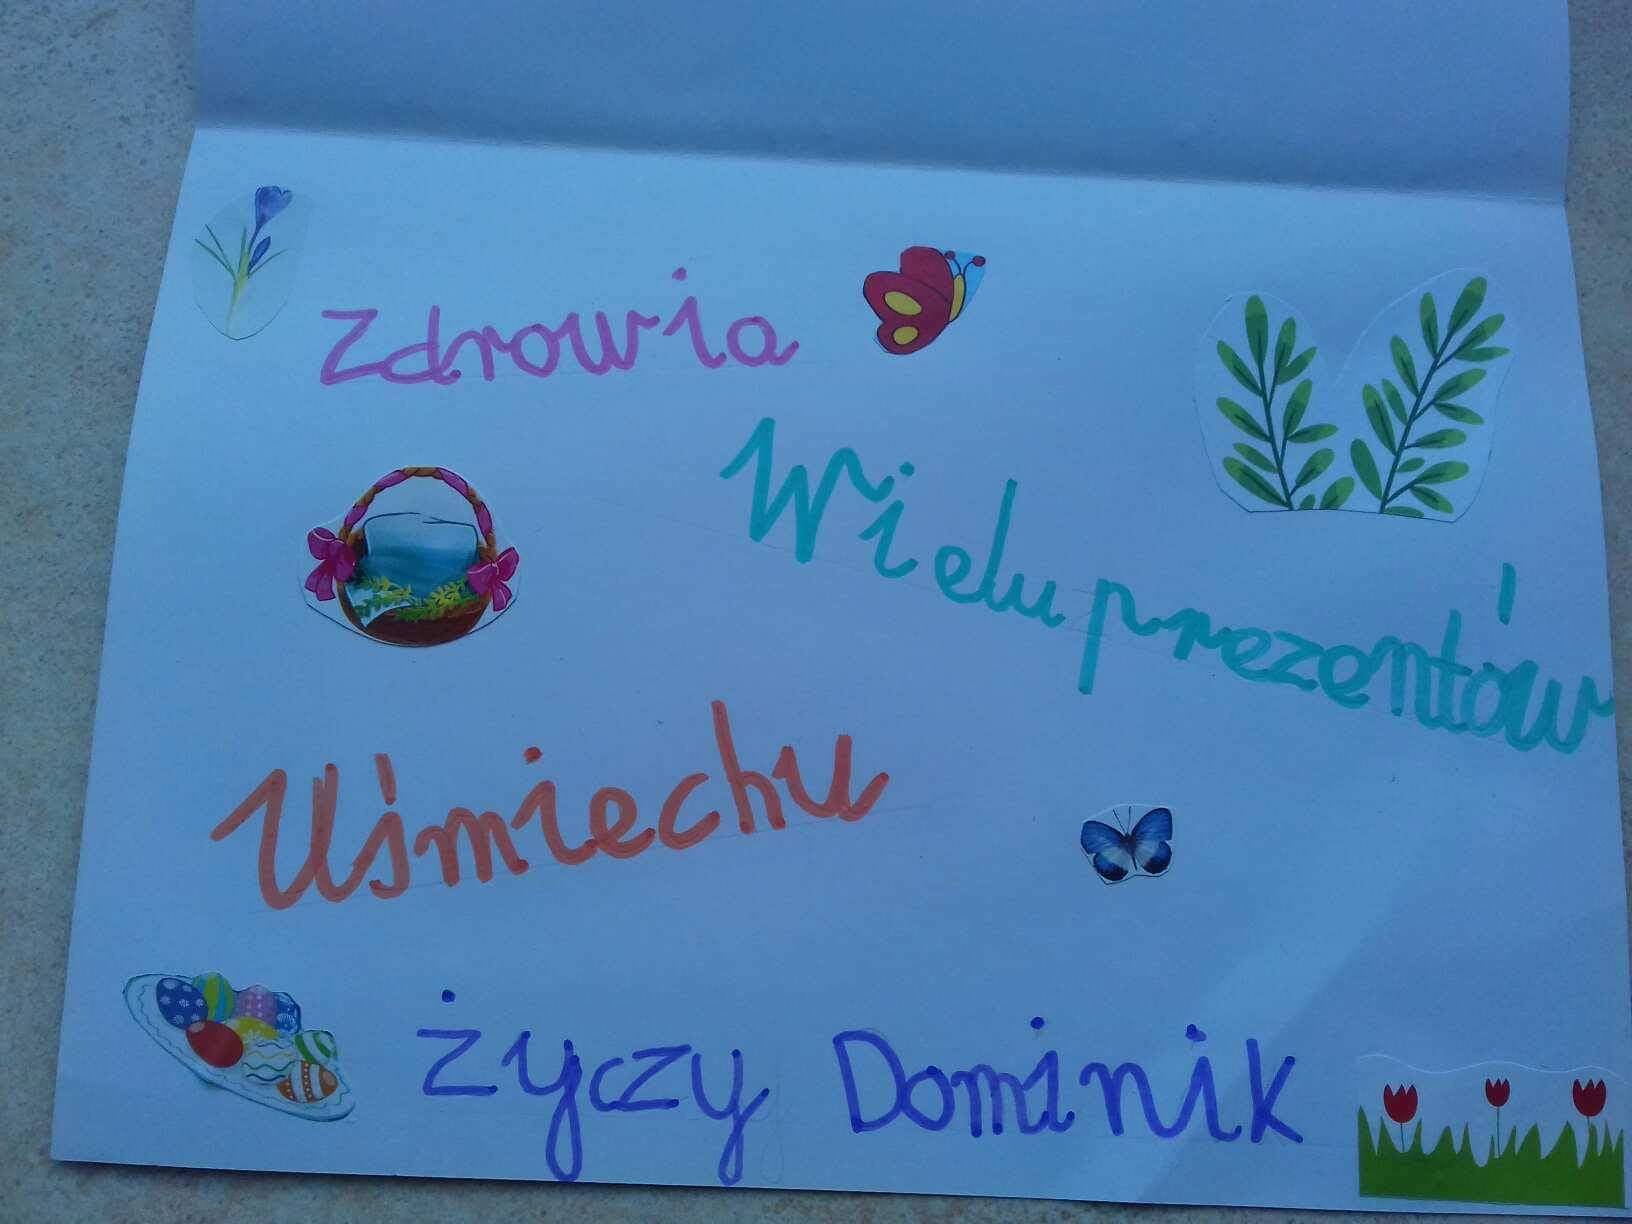 Zdrowia
Wielu prezentów
Uśmiechu
Życzy Dominik